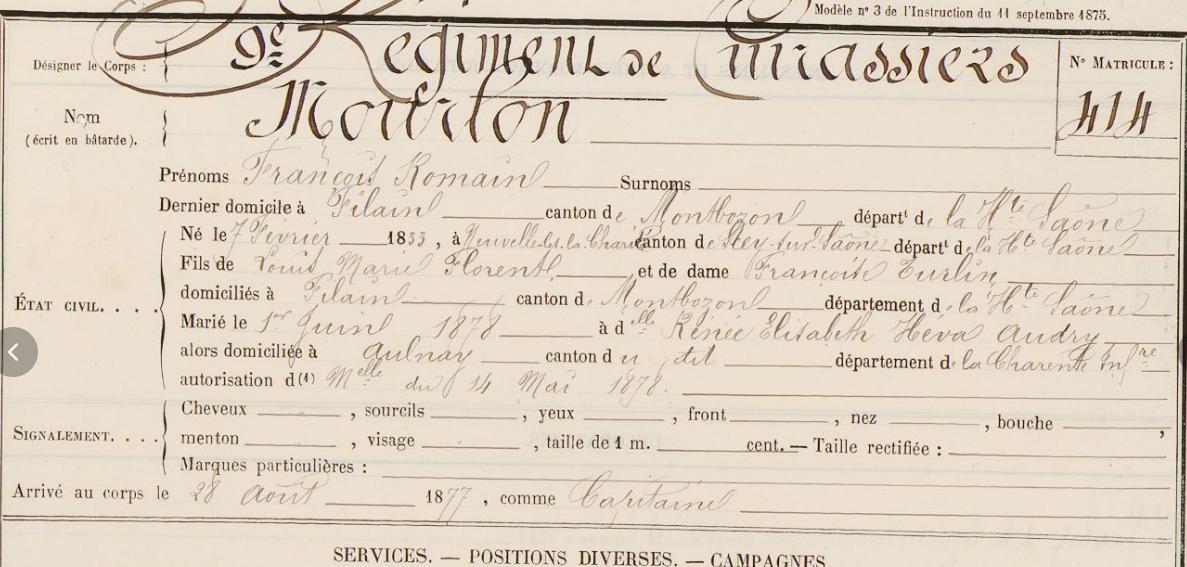 Modèle nº 3 de l'Instruction du 11 septembre 1875.
Désigner le Corps : 9e Régiment de Cuirassiers
Nº MATRICULE : 414
Nom (écrit en bâtarde). Mourlon
Prénoms François Romain Surnoms
Dernier domicile à Filain canton de Montbozon départt de la Hte Saône
ÉTAT CIVIL. . . . Né le 7 Février 1833, à Neuvelle-les-la-Charité canton de Scey-sur-Saône départt de la Hte Saône
Fils de Louis Marie Florent et de dame Françoise Eurlin
domiciliés à Filain canton de Montbozon département de la Hte Saône
Marié le 1er Juin 1878 à delle Rénée Elisabeth Héva Audry
alors domiciliée à Aulnay canton du dit département de la Charente Infre
autorisation d(1) Melle du 14 Mai 1878.
SIGNALEMENT. . . . Cheveux , sourcils , yeux , front , nez , bouche ,
menton , visage , taille de 1 m. cent. — Taille rectifiée :
Marques particulières :
Arrivé au corps le 28 Août 1877, comme Capitaine
SERVICES. — POSITIONS DIVERSES. — CAMPAGNES